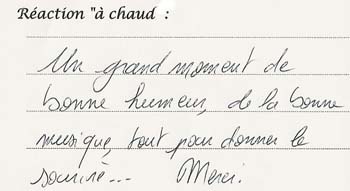 Réaction "à chaud :
Un grand moment de
bonne humeur, de la bonne
musique, tout pour donner le
sourire... Merci.